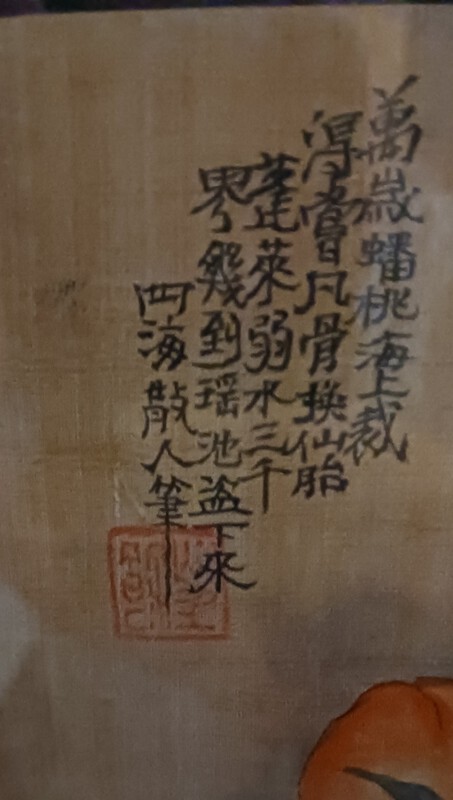 萬歲蟠桃海上裁
得嘗凡骨換仙胎
蓬萊弱水三千
界幾到瑶池盗下來
四海散人筆